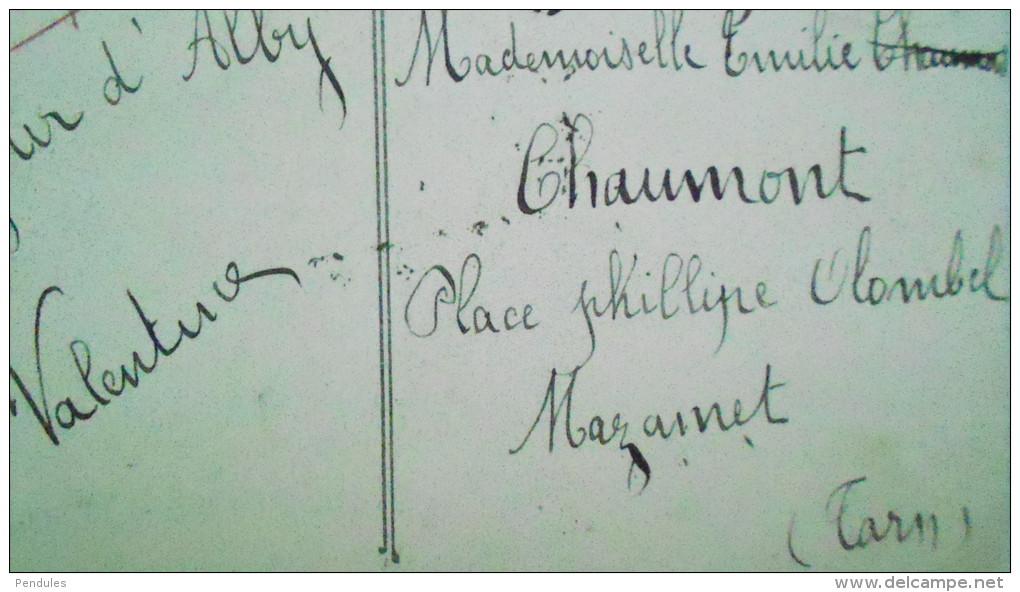 d' Alby
Valentine
Mademoiselle Emilie
Chaumont
Place phillipe Olombel
Mazamet
(Tarn)
Pendules
www.delcampe.net